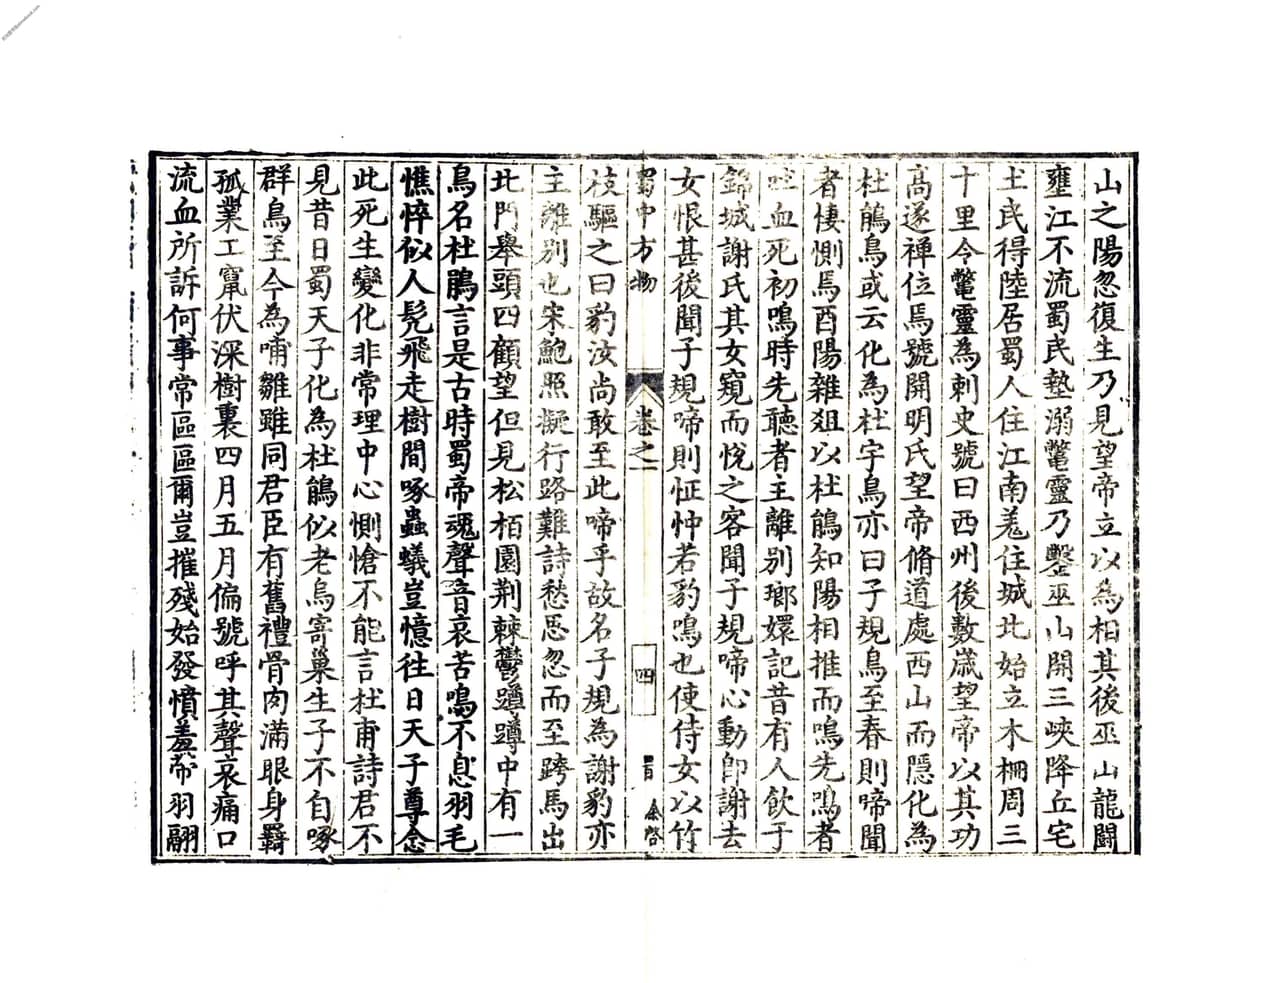 山之陽忽復生乃見望帝立以為相其後巫山龍鬭
壅江不流蜀民墊溺鼈靈乃鑿巫山開三峽降丘宅
土民得陸居蜀人住江南羗住城北始立木柵周三
十里令鼈靈為刺史號曰西州後數歲望帝以其功
高遂禅位焉號開明氏望帝脩道處西山而隱化為
杜鵑鳥或云化為杜宇鳥亦曰子規鳥至春則啼聞
者悽惻焉酉陽雜爼以杜鵑知陽相推而鳴先鳴者
吐血死初鳴時先聽者主離別瑯嬛記昔有人飲于
錦城謝氏其女窺而悅之客聞子規啼心動卽謝去
女恨甚後聞子規啼則怔忡若豹鳴也使侍女以竹
蜀中方物 卷之一 四
枝驅之曰豹汝尚敢至此啼乎故名子規為謝豹亦
主離別也宋鮑照擬行路難詩愁思忽而至跨馬出
北門舉頭四顧望但見松栢園荆棘鬱蹲蹲中有一
鳥名杜鵑言是古時蜀帝魂聲音哀苦鳴不息羽毛
憔悴似人髠飛走樹間啄蟲蟻豈憶往日天子尊念
此死生變化非常理中心惻愴不能言杜甫詩君不
見昔日蜀天子化為杜鵑似老烏寄巢生子不自啄
群鳥至今為哺雛雖同君臣有舊禮骨肉滿眼身羇
孤業工竄伏深樹裏四月五月偏號呼其聲哀痛口
流血所訴何事常區區爾豈摧殘始發憤羞帶羽翮